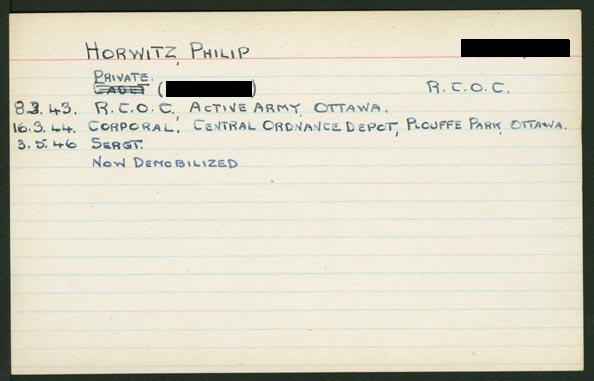 HORWITZ, PHILIP
PRIVATE.
CADET ( ) R.C.O.C.
8.3.43. R.C.O.C., ACTIVE ARMY, OTTAWA.
16.3.44. CORPORAL, CENTRAL ORDNANCE DEPOT, PLOUFFE PARK, OTTAWA.
3.5.46 SERGT.
NOW DEMOBILIZED